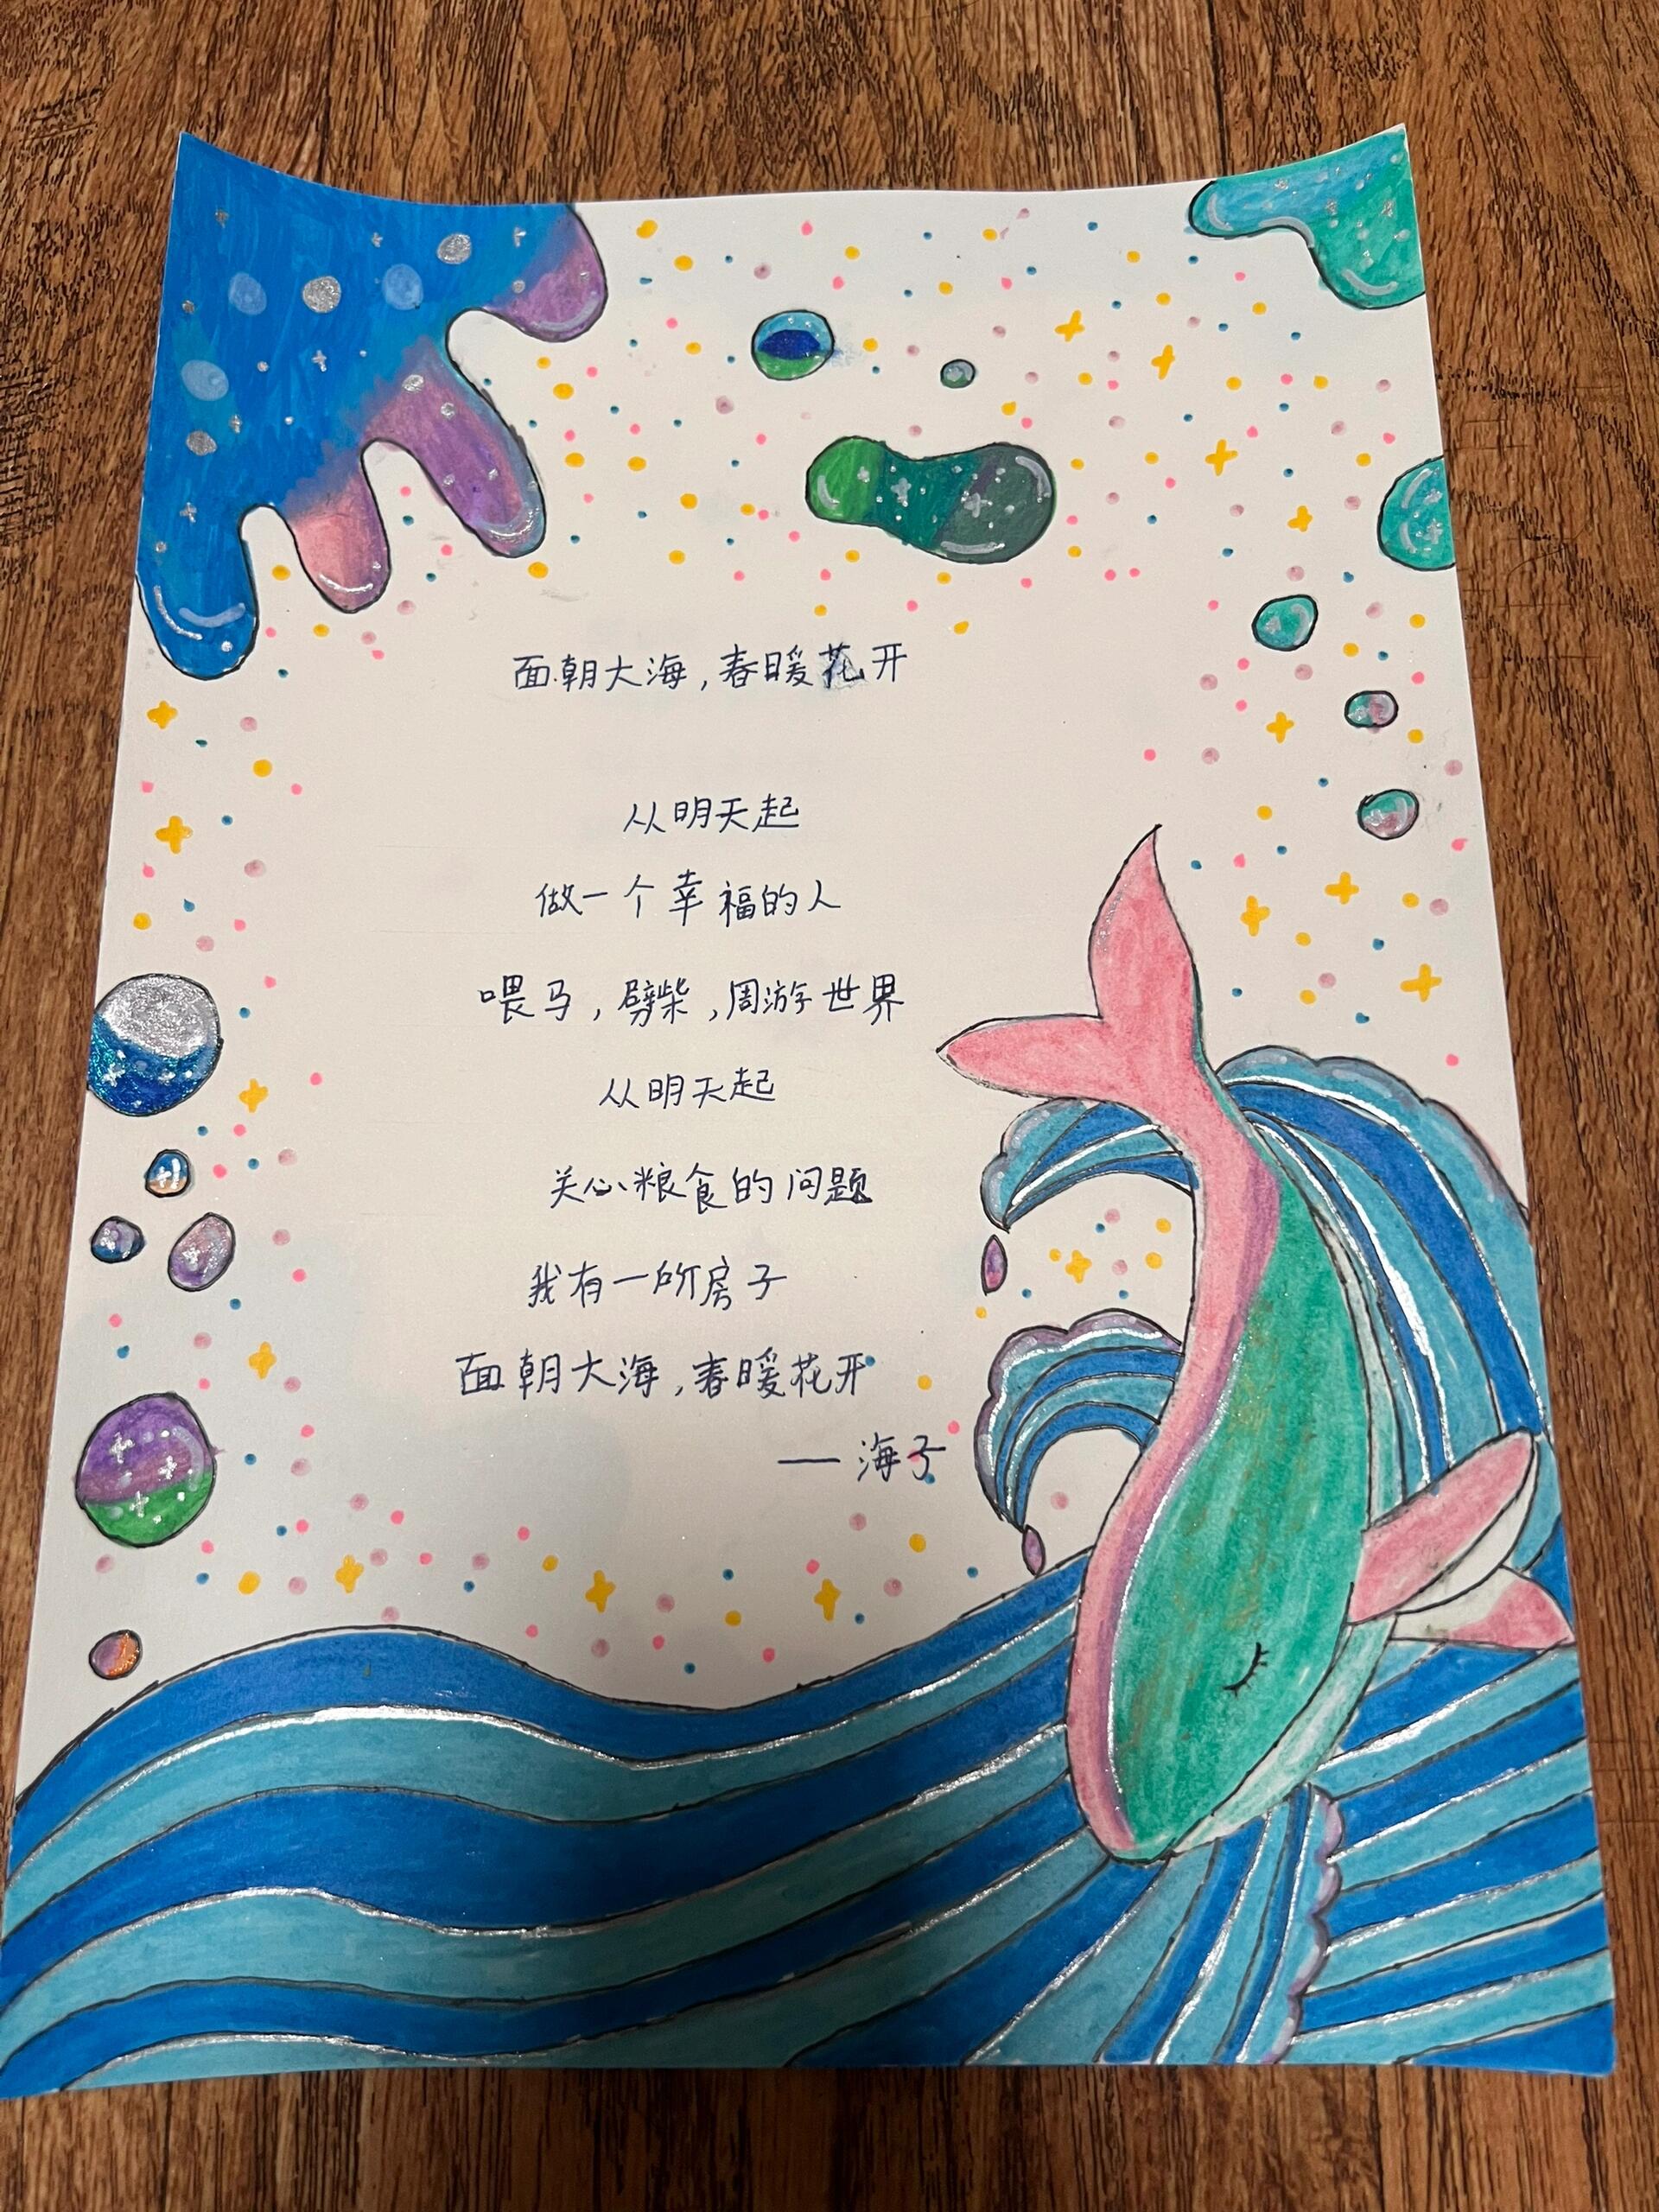 面朝大海，春暖花开
从明天起
做一个幸福的人
喂马，劈柴，周游世界
从明天起
关心粮食的问题
我有一所房子
面朝大海，春暖花开
——海子